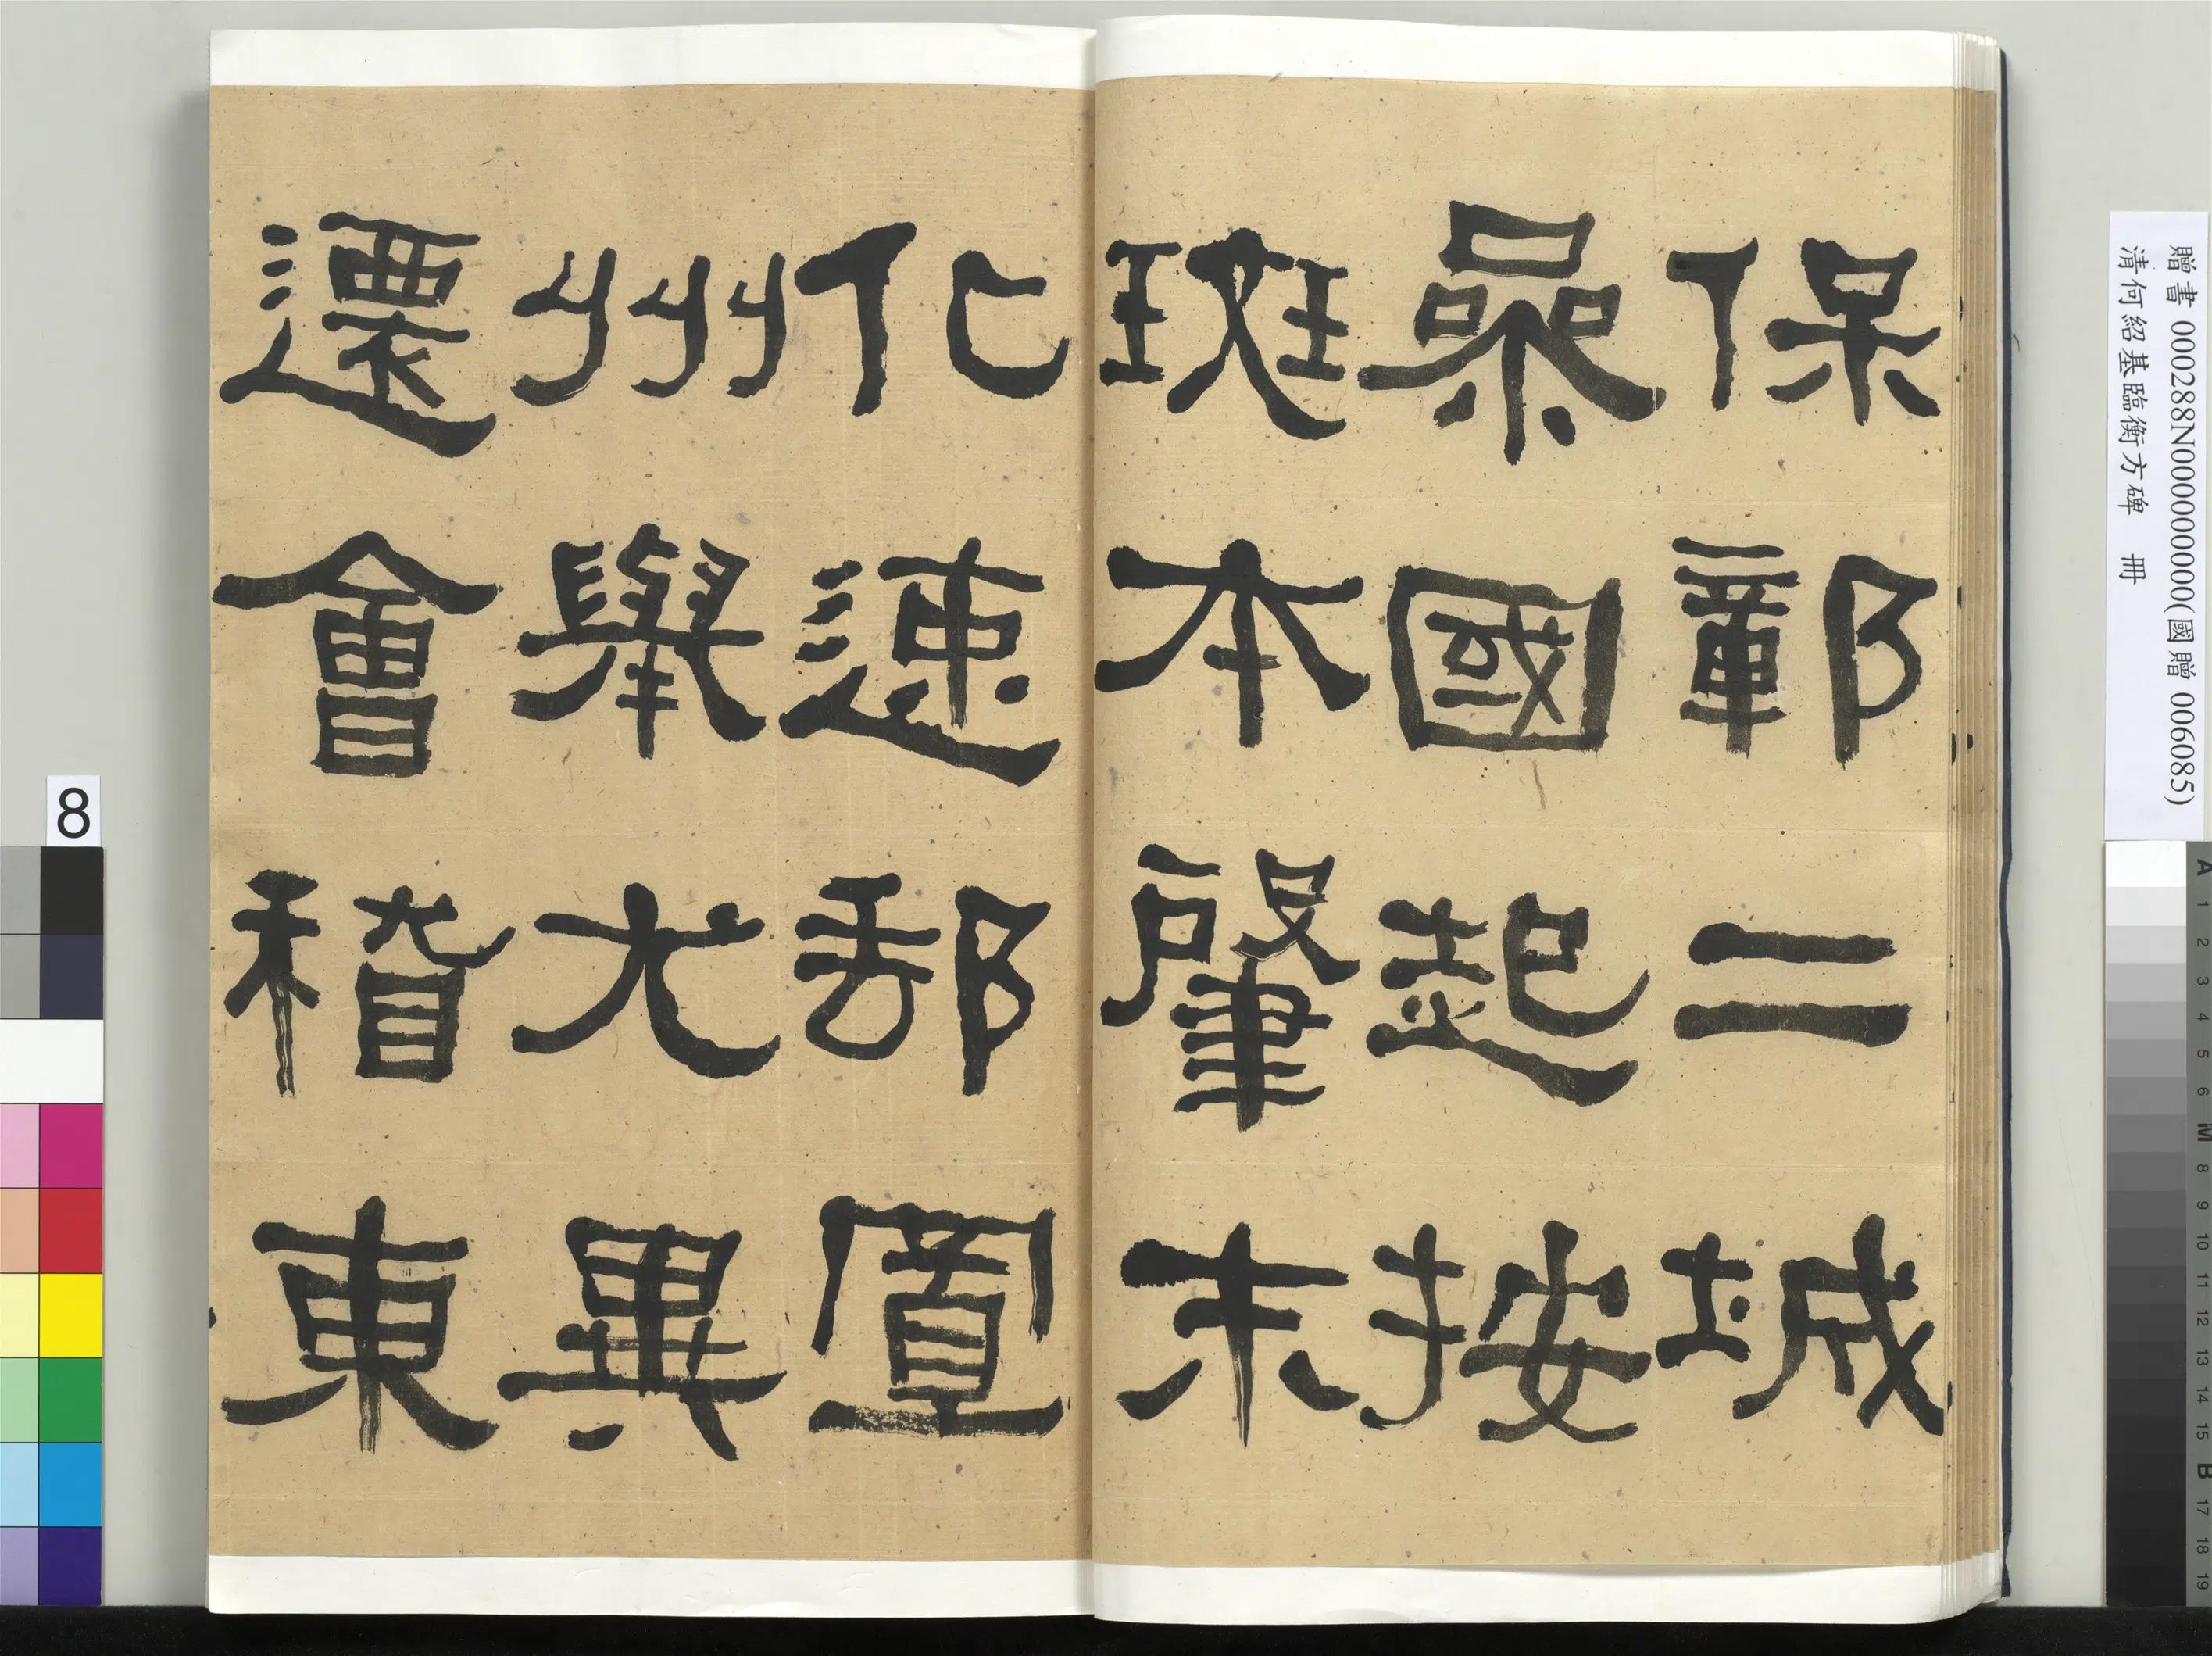 保鄣二城
參國起按
斑本肇末
化速郵置
州舉尤異
遷會稽東
贈書 000288N000000000(國贈 006085)
清何紹基臨衡方碑 冊
8
A 1 2 3 4 5 6 M 8 9 10 11 12 13 14 15 B 17 18 19